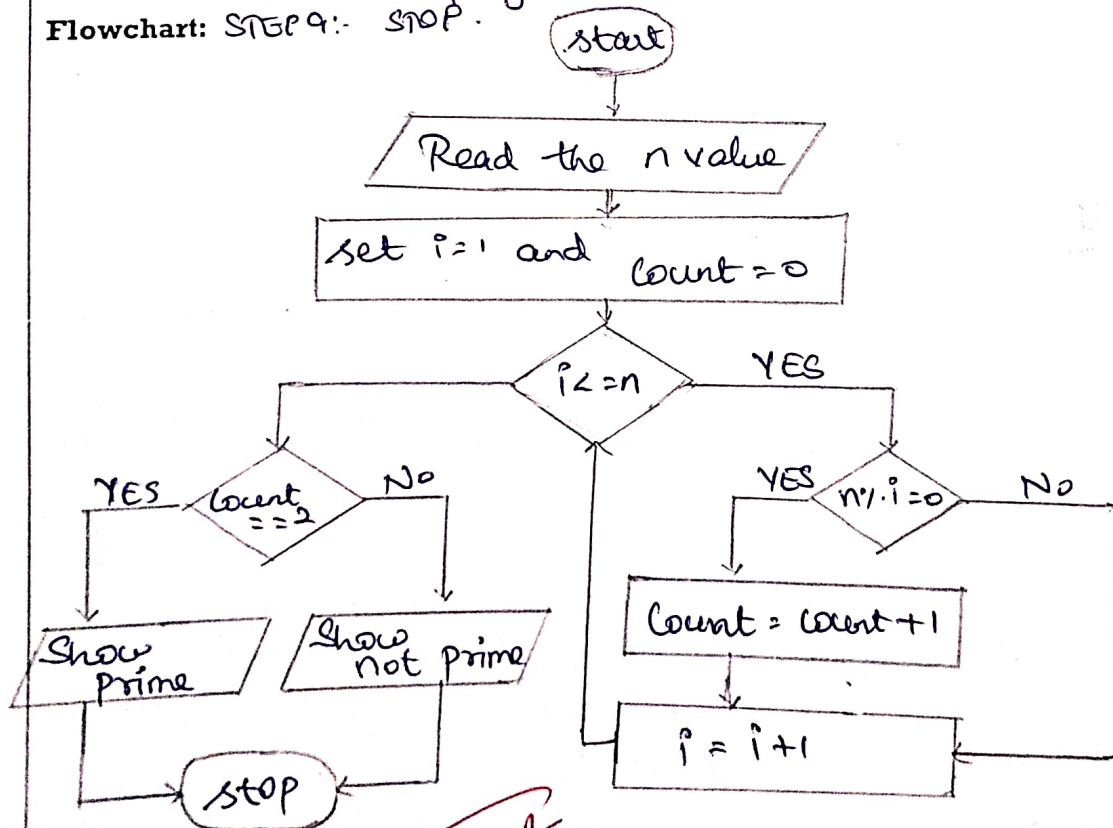 Flowchart: STEP 9:- STOP.
start
Read the n value
set i=1 and
count = 0
i<=n
YES
YES
count
==2
No
YES
n%i=0
No
Count = count +1
Show
prime
Show
not prime
i = i+1
stop